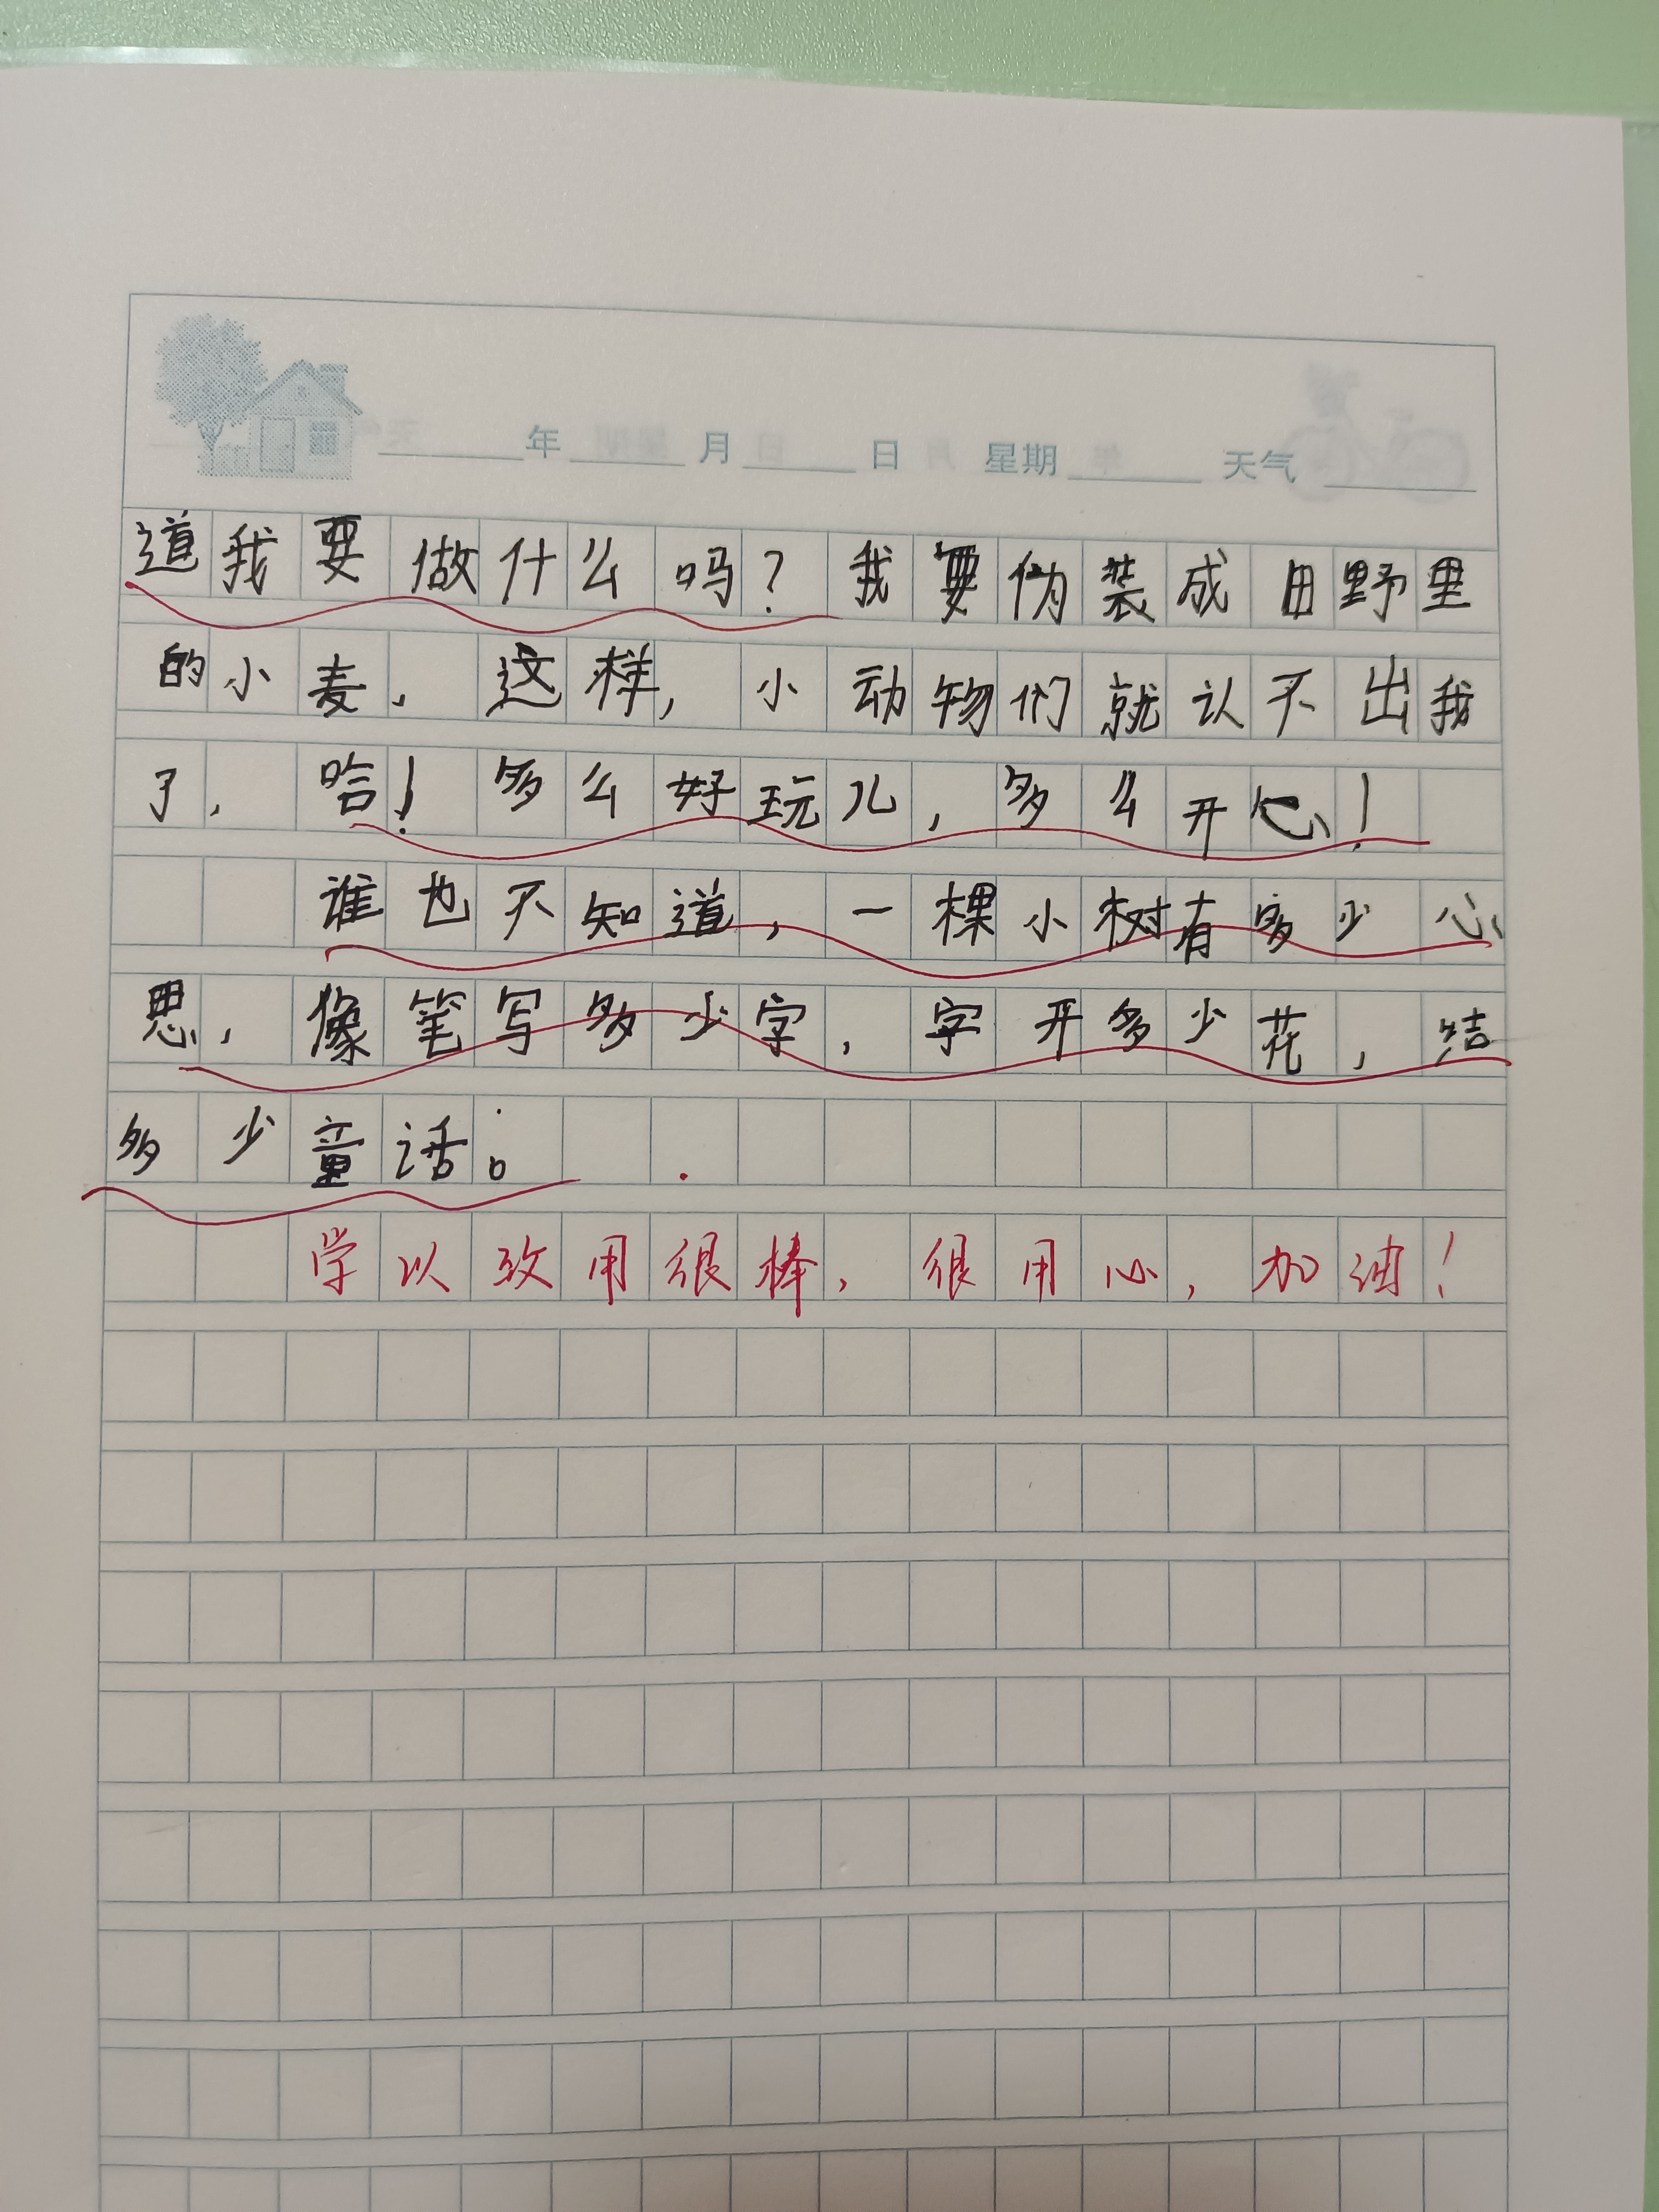 年 月 日 星期 天气
道我要做什么吗？我要伪装成田野里
的小麦，这样，小动物们就认不出我
了，哈！多么好玩儿，多么开心！
谁也不知道，一棵小树有多少心
思，像笔写多少字，字开多少花，结
多少童话。
学以致用很棒，很用心，加油！